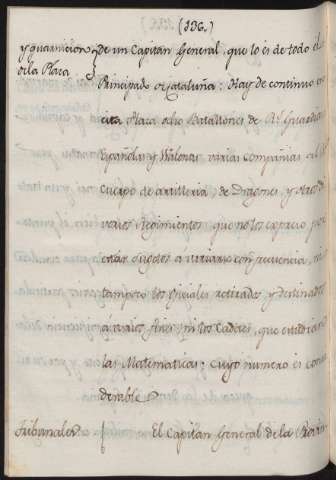 (336.)
y guarnicion de un Capitán General, que lo es de todo el
de la Plaza Principado de Cataluña: Hay de continuo en
esta Plaza ocho Batallones de Rs. Guardias
Españolas y Walonas varias compañias del
Cuerpo de artilleria, de Dragones, y otros de
varios Regimientos que no los expreso por
estar sugetos a variarse con frecuencia, ni
tampoco los oficiales retirados y destinados
a varios fines, ni los Cadetes, que estudian
las Matematicas: cuyo numero es consi
derable
Tribunales El Capitan General de la